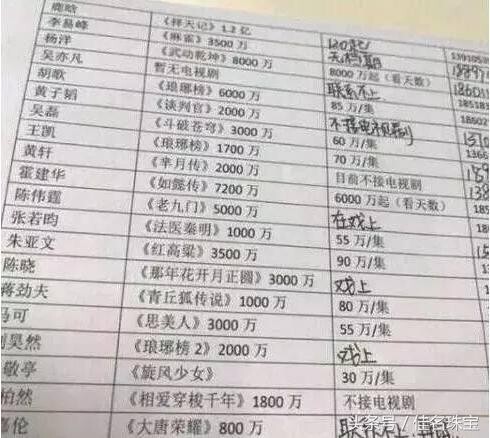 鹿晗 《择天记》1.2 亿 120起 13910539
李易峰 《麻雀》3500 万 无档期
杨洋 《武动乾坤》8000 万 8000 万起（看天数）
吴亦凡 暂无电视剧 联系不上 18518
胡歌 《琅琊榜》6000 万 85 万/集 18602
黄子韬 《谈判官》2000 万 不接电视剧
吴磊 《斗破苍穹》3000 万 60 万/集 1366
王凯 《琅琊榜》1700 万 70 万/集
黄轩 《芈月传》2000 万 目前不接电视剧
霍建华 《如懿传》7200 万 6000 万起（看天数）
陈伟霆 《老九门》5000 万 在戏上
张若昀 《法医秦明》1000 万 55 万/集
朱亚文 《红高粱》3500 万 90 万/集
陈晓 《那年花开月正圆》3000 万 戏上
蒋劲夫 《青丘狐传说》1000 万 80 万/集
马可 《思美人》3000 万 55 万/集
刘昊然 《琅琊榜 2》2000 万 戏上
敬亭 《旋风少女》 30 万/集
柏然 《相爱穿梭千年》1800 万 不接电视剧
嘉伦 《大唐荣耀》800 万
头条号／佳名珠宝